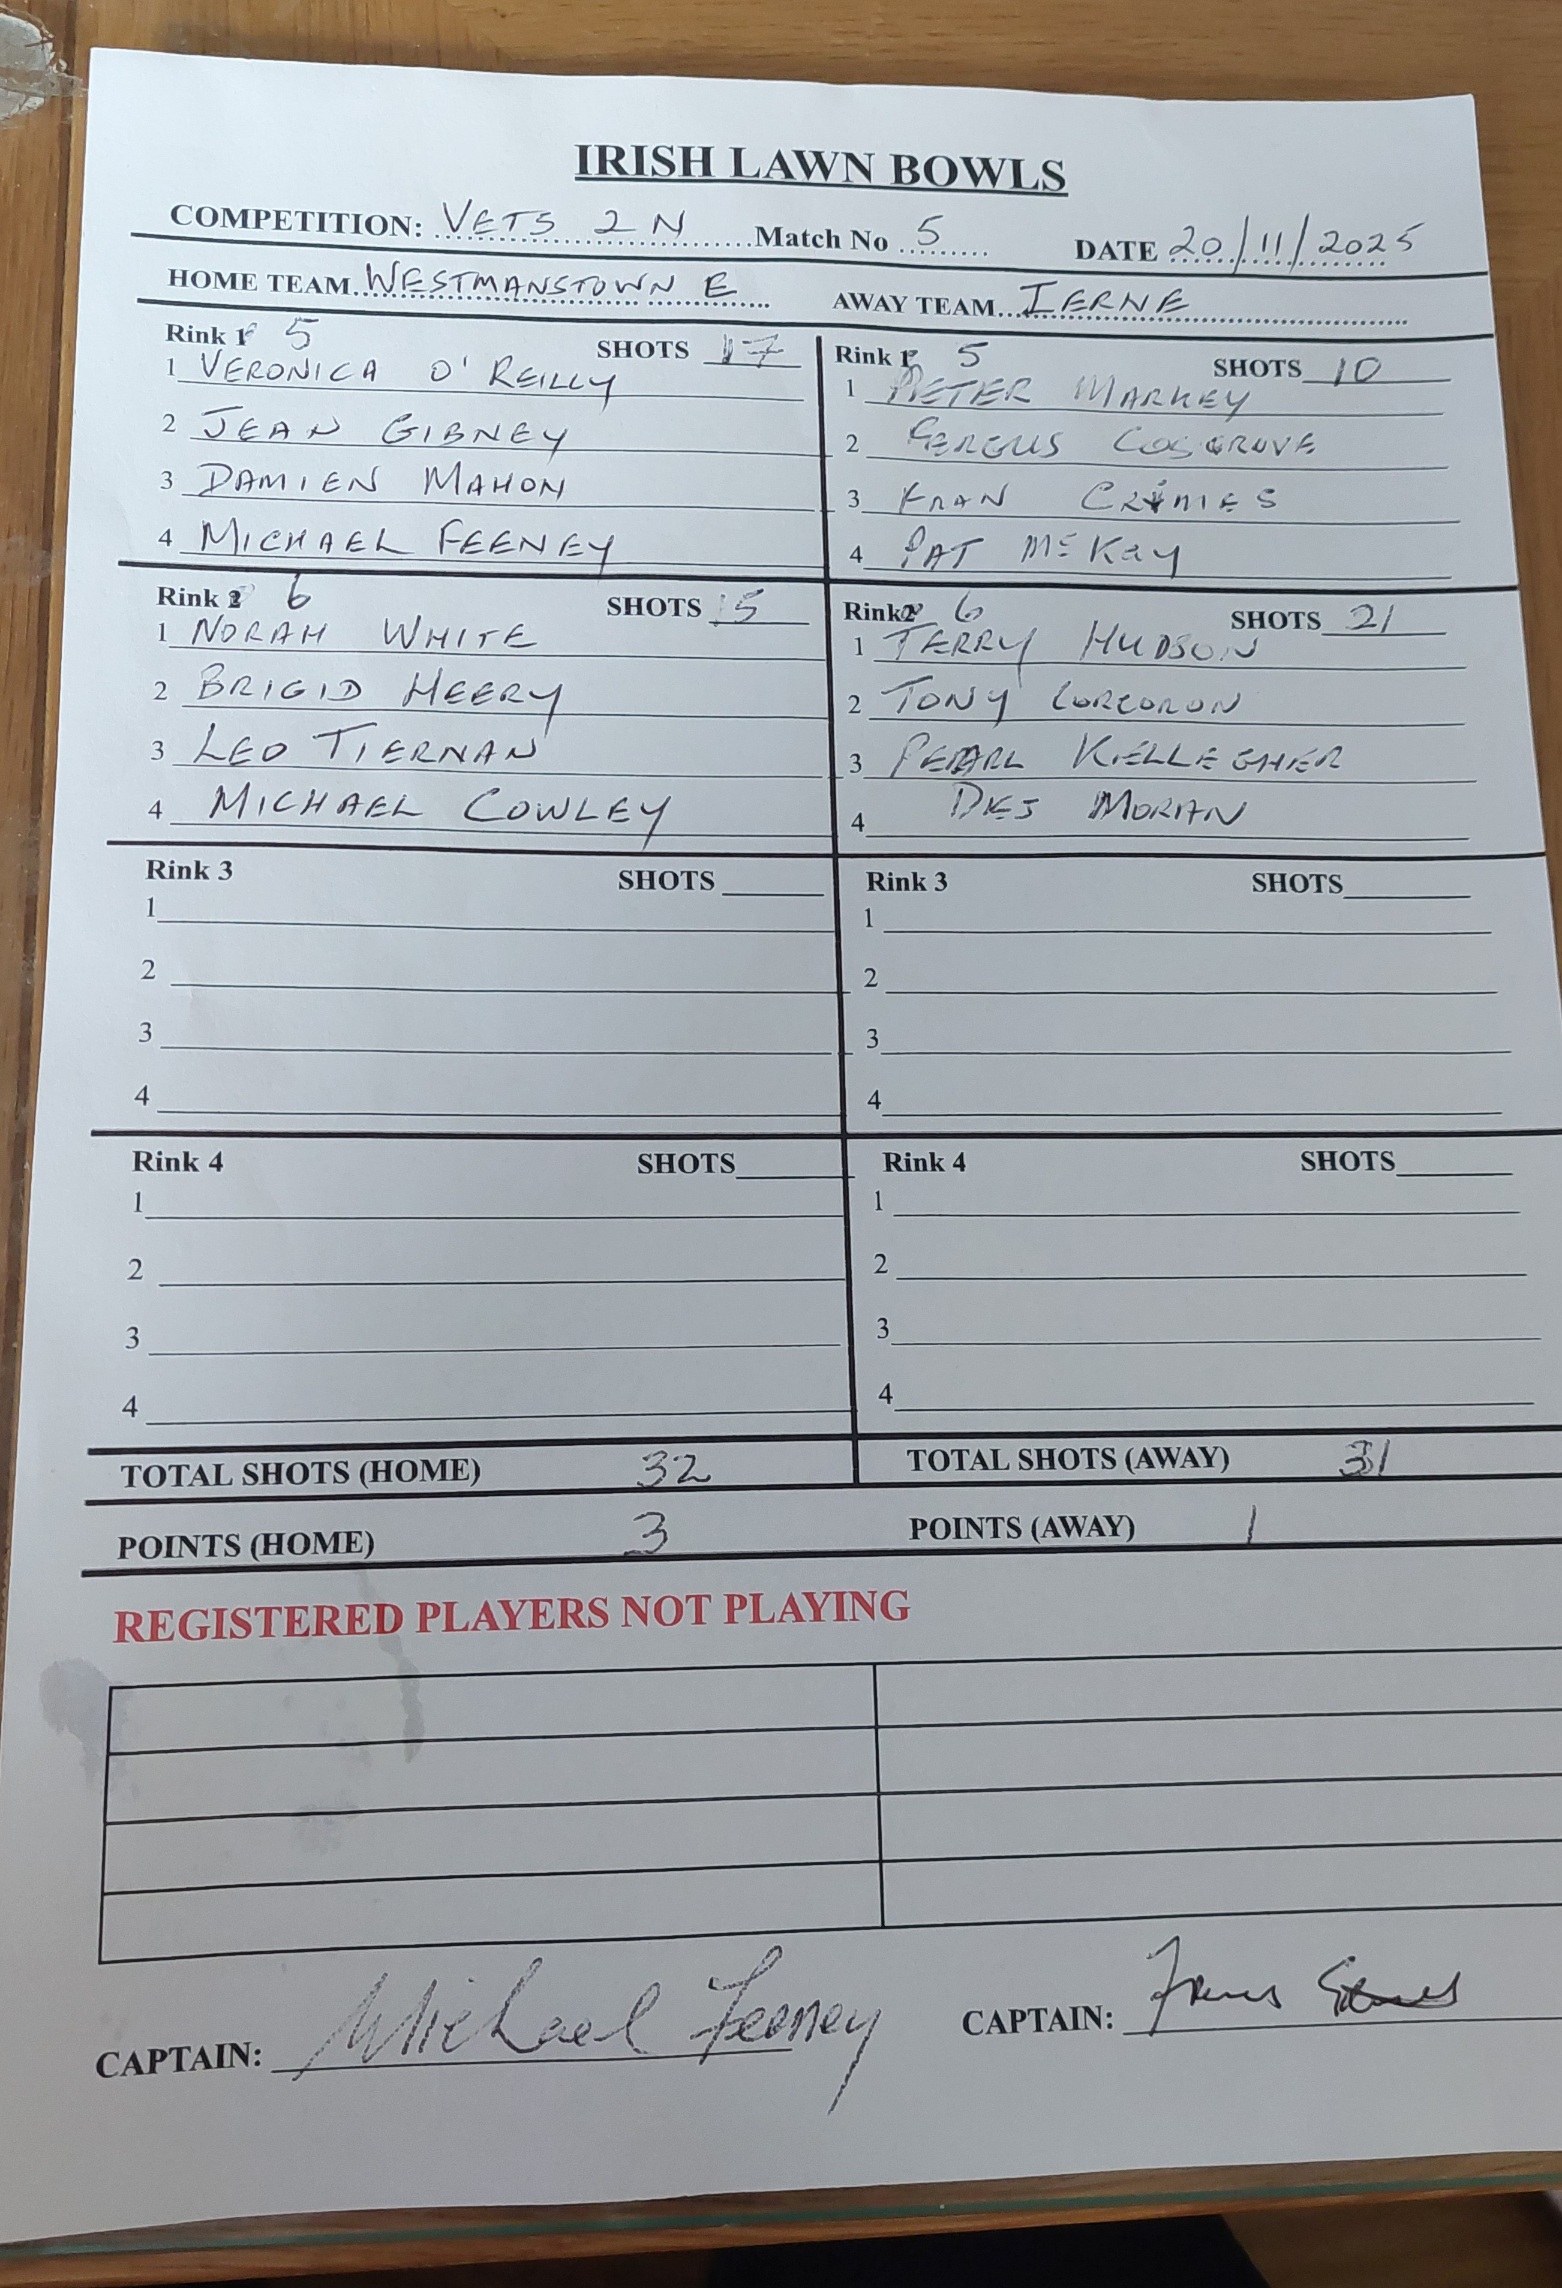 IRISH LAWN BOWLS
COMPETITION: VETS 2 N Match No 5 DATE 20/11/2025
HOME TEAM WESTMANSTOWN E AWAY TEAM IERNE
Rink 5 SHOTS 17
1 VERONICA O'REILLY
2 JEAN GIBNEY
3 DAMIEN MAHON
4 MICHAEL FEENEY
Rink 5 SHOTS 10
1 PETER MARKEY
2 FERGUS COSGROVE
3 FRAN
4 PAT McKAY
Rink 6 SHOTS 15
1 NORAH WHITE
2 BRIGID HEERY
3 LEO TIERNAN
4 MICHAEL COWLEY
Rink 6 SHOTS 21
1 TERRY HUDSON
2 TONY CORCORON
3 PEARL KELLEGHER
4 DES MORAN
Rink 3 SHOTS
1
2
3
4
Rink 3 SHOTS
1
2
3
4
Rink 4 SHOTS
1
2
3
4
Rink 4 SHOTS
1
2
3
4
TOTAL SHOTS (HOME) 32 TOTAL SHOTS (AWAY) 31
POINTS (HOME) 3 POINTS (AWAY) 1
REGISTERED PLAYERS NOT PLAYING
CAPTAIN: Michael Feeney CAPTAIN: